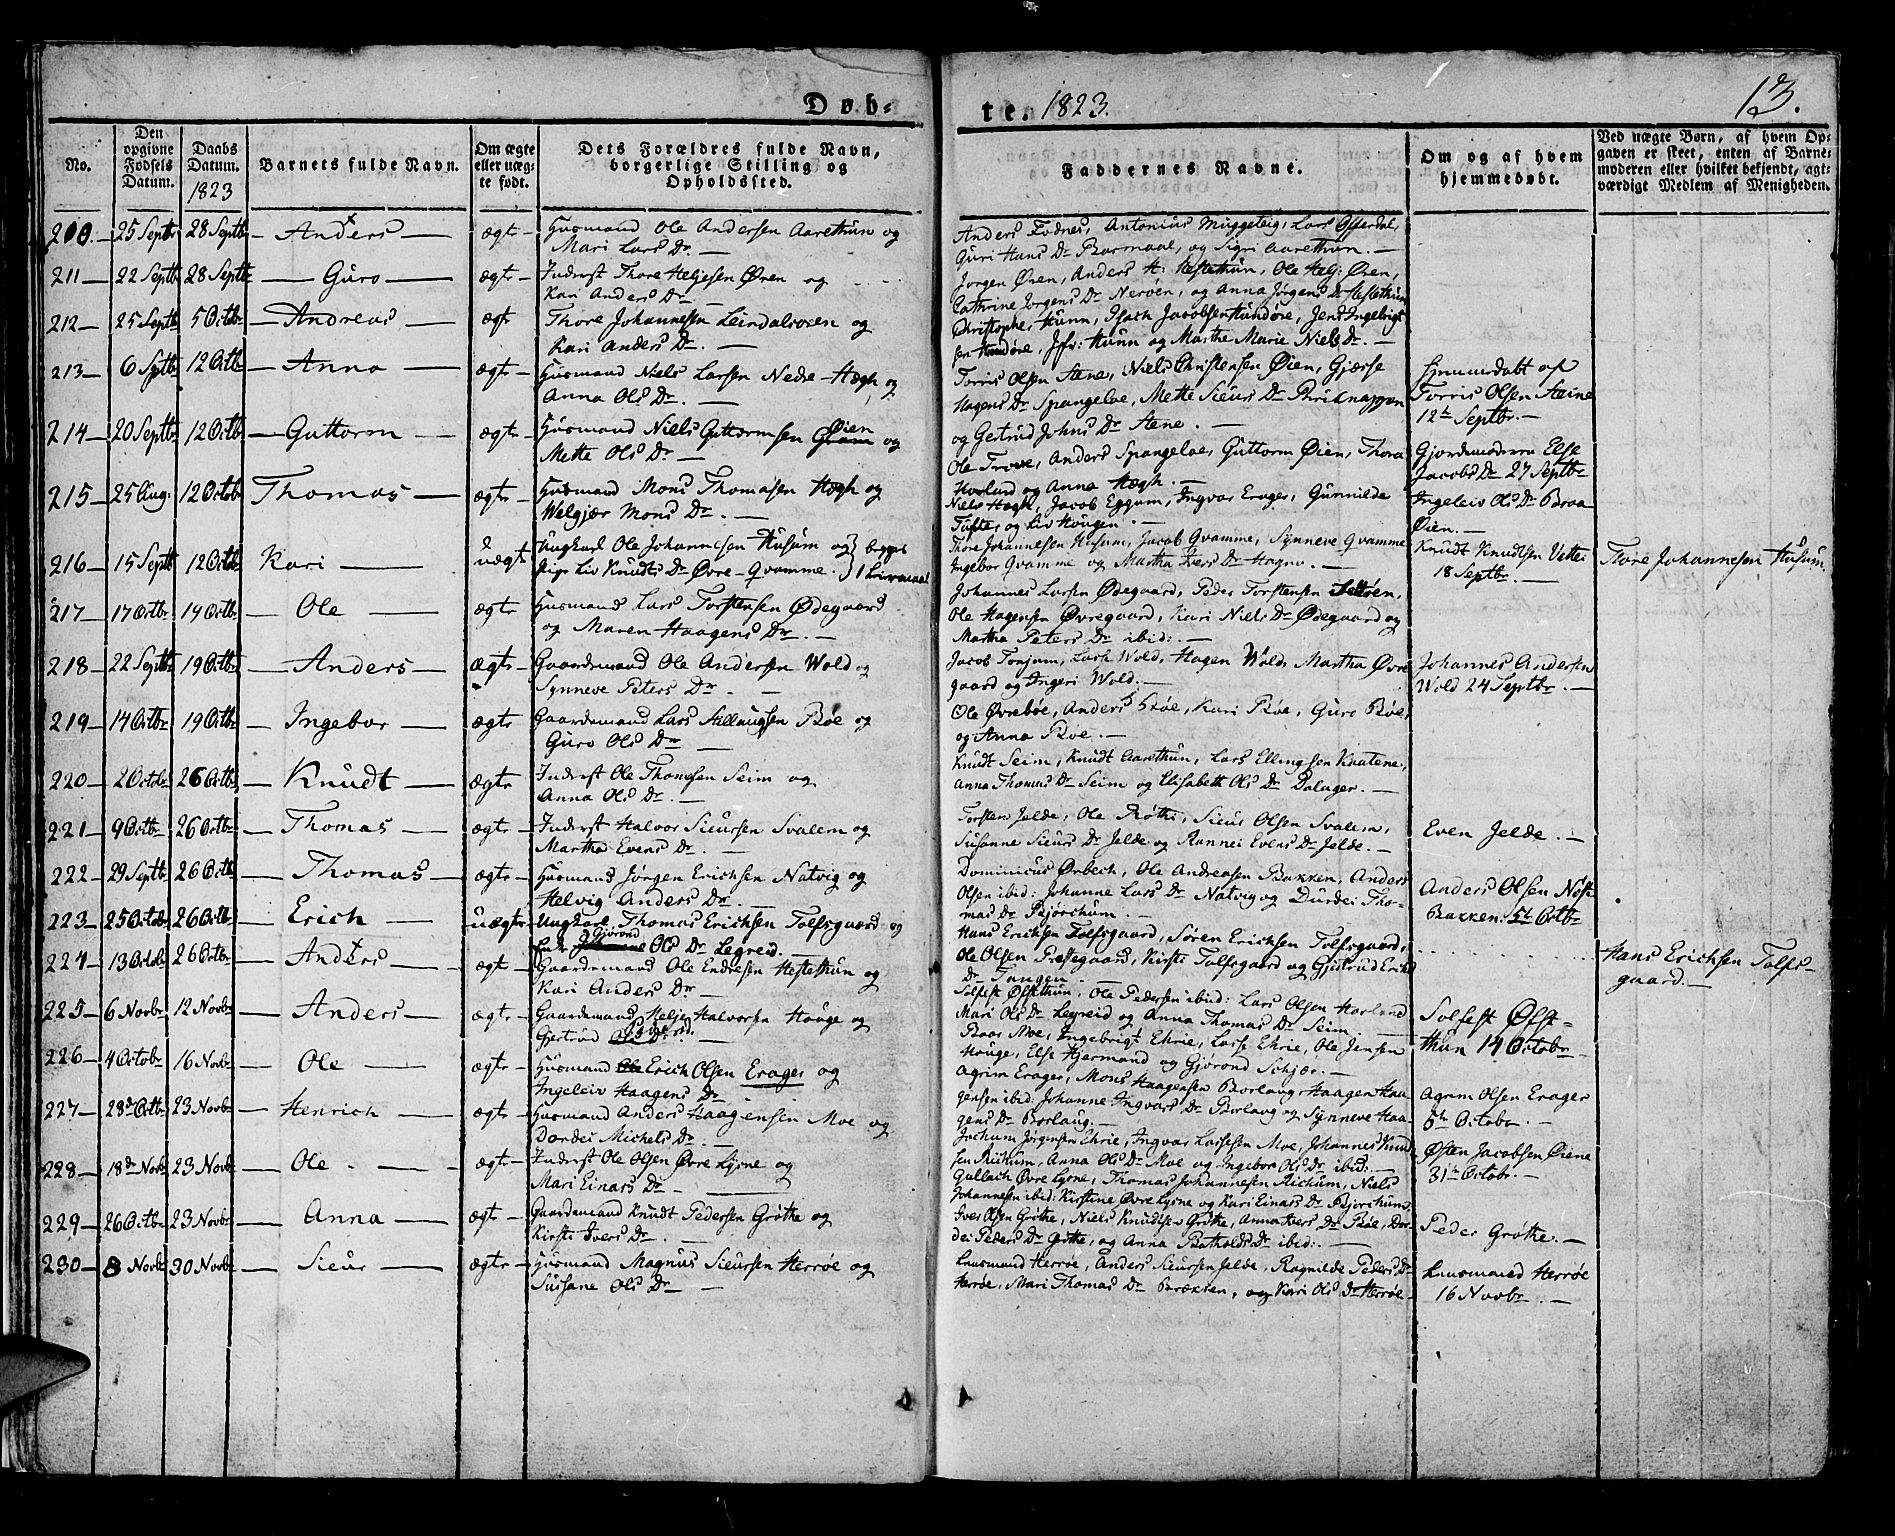 Døb-
te. 1823.
13.
No.
Den opgivne Fødsels Datum.
Daabs Datum. 1823
Barnets fulde Navn.
Om ægte eller uægte født.
Dets Forældres fulde Navn, borgerlige Stilling og Opholdssted.
Faddernes Navne.
Om og af hvem hjemmedøbt.
Ved uægte Børn, af hvem Opgaven er skeet, enten af Barnemoderen eller hvilket bekjendt, agtværdigt Medlem af Menigheden.
210. 25 Septbr 28 Septbr Anders ægte Huusmand Ole Andersen Aarethun og
Mari Lars Dr.
Anders Fodnes, Antonius Muggeteig, Lars
Guri Hans Dr, og Sigri Aarethun.
211 22 Septbr 28 Septbr Guro ægte Inderst Thore Heljesen Øren og
Kari Anders Dr
Jørgen Øren, Anders H: Hestethun, Ole Helj: Øren,
Cathrine Jørgens Dr Nerøen, og Anna Jørgens Dr Hestethun
212 25 Septbr 5 Octbr Andreas ægte Thore Johannesen Leirdalsøren og
Kari Anders Dr.
Christopher Hunn, Isach Jacobsen Hundøre, Jens Ingebrigt
sen Hundøre, Jfr: Hunn og Marthe Marie Niels Dr.
213 6 Septbr 12 Octbr Anna ægte Huusmand Niels Larsen Nedre-Hægh og
Anna Ols Dr.
Torris Olsen Stene, Niels Christensen Øien, Gjærse
Hagens Dr Spangeloe, Mette Sieurs Dr
og Gertrud Johns Dr Stene.
Hiemmedøbt af
Torris Olsen Steine
12te Septbr.
214 20 Septbr 12 Octbr Guttorm ægte Huusmand Niels Guttormsen Øien og
Mette Ols Dr
Ole Troue, Anders Spangeloe, Guttorm Øien, Thora
Horlund og Anna Hægh.
Gjordemoderen Else
Jacobs Dr 27 Septbr
215 25 Aug. 12 Octobr Thomas ægte Huusmand Mons Thomasen Hægh og
Welgjær Mons Dr.
Niels Hægh, Jacob Eggum, Ingvar Erager, Gunnilde
Tufte, og Liv Hougen.
Ingeleiv Ols Dr Boraa
Øien.
216 15 Septbr 12 Octbr Kari uægte Ungkarl Ole Johannesen Husum og } begges
Pige Liv Knudts Dr Øvre-Qvamme. } 1 Leiermaal
Thore Johannesen Husum, Jacob Qvamme, Synneve Qvamme
Ingebor Qvamme og Martha Ivers Dr Hagno.
Knudt Knudtsen Vette
18 Septbr.
Tore Johannesen Husum.
217 17 Octbr 19 Octbr Ole ægte Huusmand Lars Torstensen Ødegaard
og Maren Haagens Dr.
Johannes Larsen Ødegaard, Peder Torstensen
Ole Hagensen Øvregaard, Kari Niels Dr Ødegaard og
Martha Peters Dr ibid:.
218 22 Septbr 19 Octbr Anders ægte Gaardemand Ole Andersen Wold og
Synneve Peters Dr.
Jacob Tonjum, Lasse Wold, Hagen Wold, Martha Øvre
gaard og Ingeri Wold.
Johannes Andersen
Wold 24 Septbr.
219 14 Octbr 19 Octbr Ingebor ægte Gaardemand Lars Sillaugsen Bøe og
Guro Ols Dr
Ole Øvrebøe, Anders Bøe, Kari Bøe, Guro Bøe,
og Anna Bøe.
220 2 Octobr 26 Octbr Knudt ægte Inderst Ole Thomesen Seim og
Anna Ols Dr.
Knudt Seim, Knudt Aarethun, Lars Ellingsen Knatene,
Anna Thomas Dr Seim og Elisabeth Ols Dr Dalager.
221 9 Octbr 26 Octbr Thomas ægte Inderst Halvor Sieursen Svalem og
Martha Evens Dr.
Torsten Jelde, Ole Røthi, Sieur Olsen Svalem,
Susanne Sieurs Dr Jelde og Rannei Evens Dr Jelde.
Even Jelde.
222 29 Septbr 26 Octbr Thomas ægte Huusmand Jørgen Erichsen Natvig og
Helvig Anders Dr.
Dominicus Ørbech, Ole Andreasen Bakken, Anders
Olsen ibid: Johanne Lars Dr Natvig og Durdei Tho-
mas Dr Bjørchum.
Anders Olsen
Bakken. 5te Octbr
223 25 Octobr 26 Octbr Erich uægte Ungkarl Thomas Erichsen Tolfsgaard og
Gjørond Ols Dr Legreid.
Hans Erichsen Tolfsgaard, Søren Erichsen Tolfsgaard,
Ole Olsen Præstegaard, Kirsti Tolfsgaard og Gjertrud Erichs
Dr Tangen.
Hans Erichsen Tolfs-
gaard.
224 13 Octobr 26 Octbr Anders ægte Gaardemand Ole Endresen Hestethun og
Kari Anders Dr
Solfest Øfsthun, Ole Pedersen ibid: Lars Olsen Horland
Mari Ols Dr Legreid og Anna Thomas Dr Seim.
225 6 Novbr 12 Novbr Anders ægte Gaardemand Heljer Halvorsen Houge og
Gjertrud Peders Dr.
Baar Moe, Ingebrigt Ehrie, Lasse Ehrie, Ole Jensen
Houge, Else Hjermand og Gjørond Schjær.
Solfest Øfst-
thun 14 Octobr
226 4 Octobr 16 Novbr Ole ægte Huusmand Erich Olsen Erager og
Ingeleiv Haagens Dr
Agrim Erager, Mons Haagensen Borlaug, Haagen Haa-
gensen ibid: Johanne Ingvars Dr Borlaug og Synneve Haa-
gens Dr Borlaug.
Agrim Olsen Erager
5te Octobr.
227 28de Octbr 23 Novbr Henrich ægte Huusmand Anders Haagensen Moe og
Dordei Michels Dr.
Jochum Jørgensen Ehrie, Ingvar Lassesen Moe, Johannes Knud
sen Richum, Anna Ols Dr Moe og Ingebor Ols Dr ibid:.
Østen Jacobsen Øiene
31te Octobr.
228 18de Novbr 23 Novbr Ole ægte Inderst Ole Olsen Øvre Lysne og
Mari Einars Dr
Gullach Øvre Lysne, Thomas Johannesen Richum, Niels
Johannesen ibid: Kirstine Øvre Lysne og Kari Einars Dr Bjørchum.
229 26 Octbr 23 Novbr Anna ægte Gaardemand Knudt Pedersen Grøthe og
Kirsti Ivers Dr.
Iver Olsen Grøthe, Niels Knudtsen Grøthe, Anna Ivers Dr Bøe, Dor-
dei Peders Dr Grøthe, og Anna Botholds Dr ibid:.
Peder Grøthe.
230 8 Novbr 30 Novbr Sieur ægte Huusmand Magnus Sieursen Herrøe og
Susane Ols Dr
Herrøe, Anders Sieursen Jelde, Ragnilde Peders Dr
Herrøe, Mari Thomas Dr, og Kari Ols Dr Herrøe
Herrøe
16 Novbr.